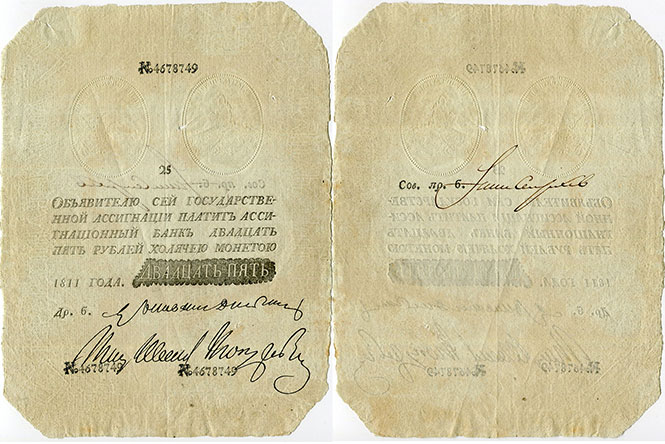 №4678749
25
ОБЪЯВИТЕЛЮ СЕЙ ГОСУДАРСТВЕ-
ННОЙ АССИГНАЦІИ ПЛАТИТЪ АССИ-
ГНАЦІОННЫЙ БАНКЪ ДВАДЦАТЬ
ПЯТЬ РУБЛЕЙ ХОЛЯЧЕЮ МОНЕТОЮ
1811 ГОДА. ДВАДЦАТЬ ПЯТЬ
Др. б.
№4678749 №4678749
Сов. пр. б.